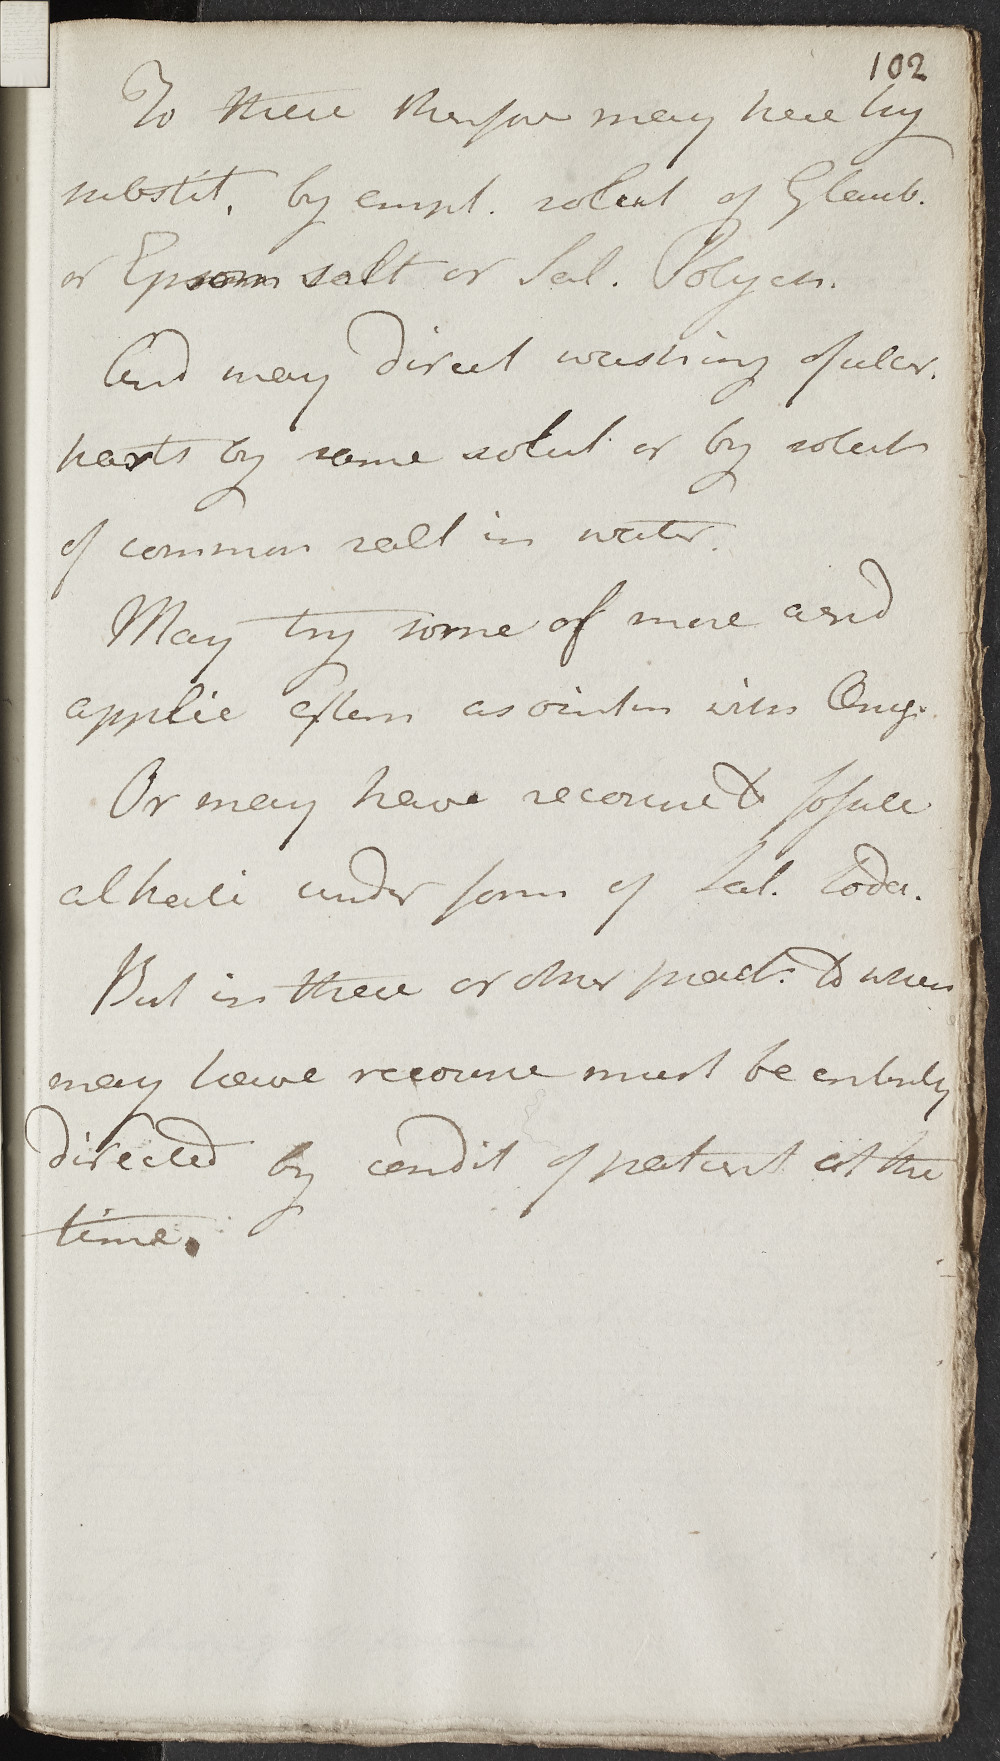 102
To these therefore may here try
substit. by empl. solut of Glaub.
or Epsom salt or Sal. Polycr.
And may direct washing of ulcer.
parts by same solut or by solut
of common salt in water.
May try some of more acrid
applic often as ointm with Ung.
Or may have recourse to fossile
alkali under form of Sal. Soda.
But in these or other pract. to when
may have recourse must be entirely
directed by condit of patient at the
time.